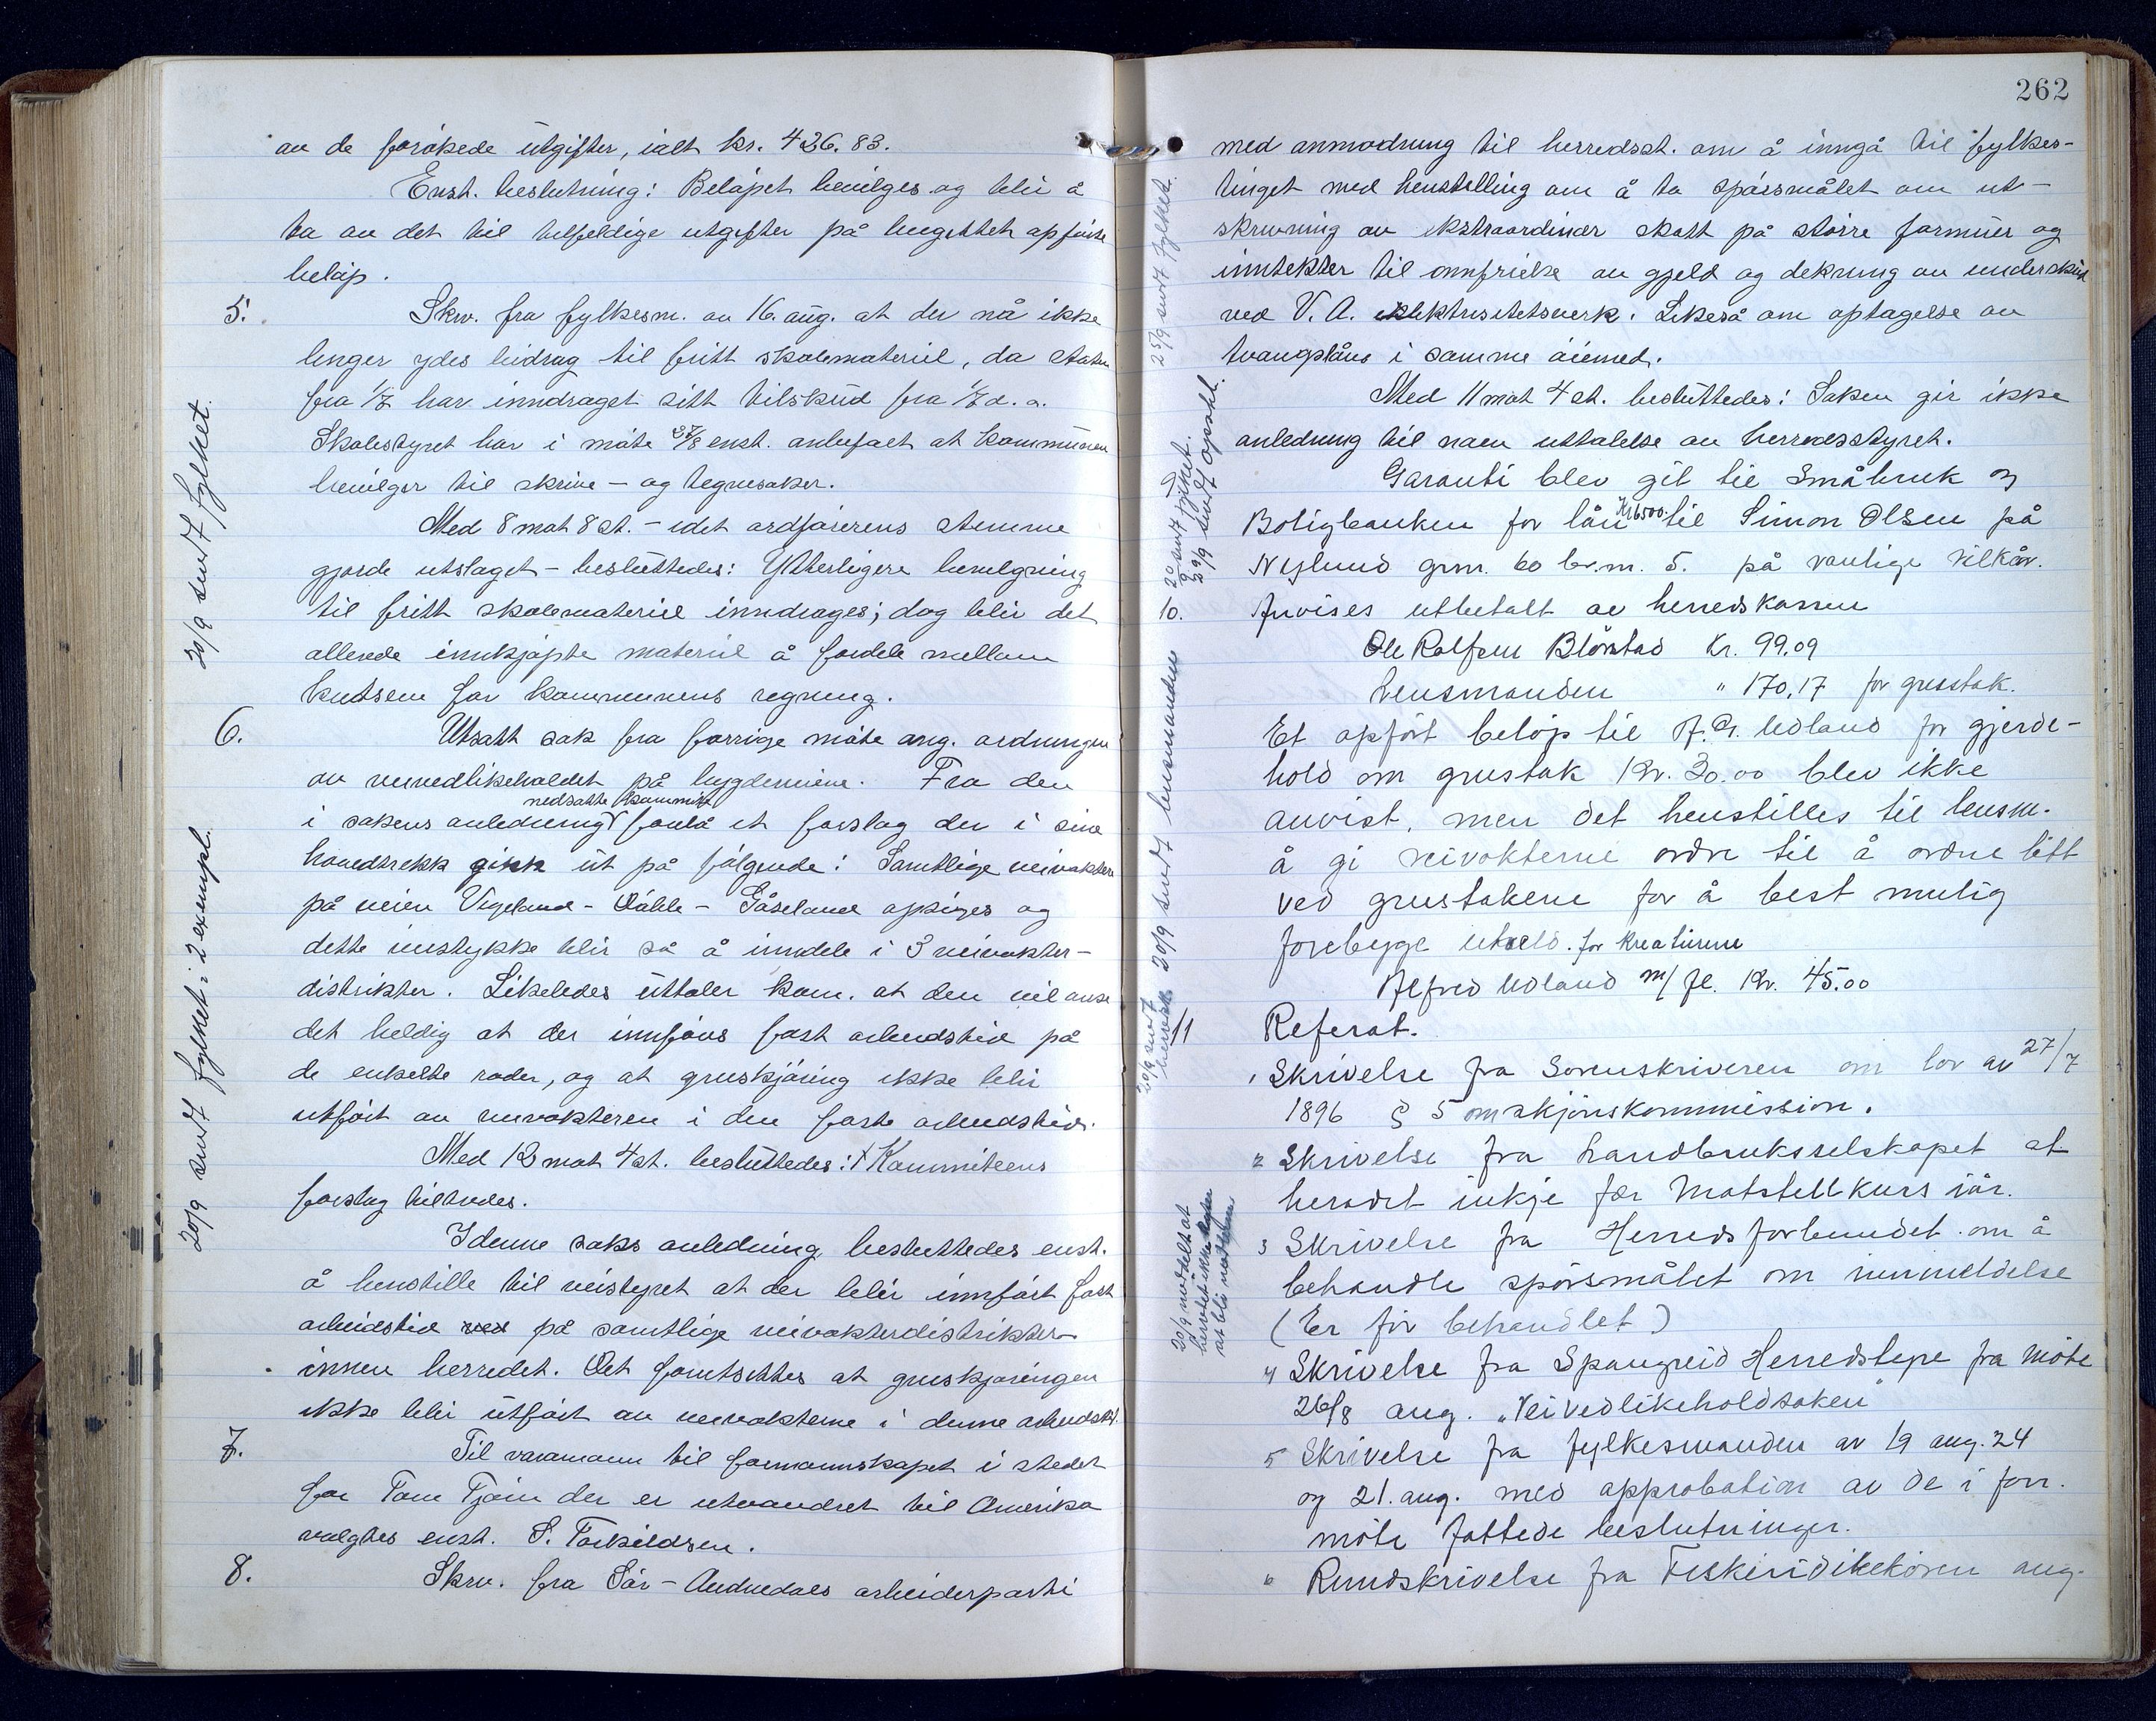 av de forökede utgifter, ialt kr. 426.83.
Enst. beslutning: Belöpet bevilges og blir å
ta av det til tilfeldige utgifter på bugettet opförte
belöp.
5. Skriv. fra fylkesm. av 16. aug. at der nå ikke
lenger ydes bidrag til fritt skolemateriel, da staten
fra 1/7 har inndraget sitt tilskud fra 1/7 d. a.
Skolestyret har i möte 27/8 enst. anbefalt at kommunen
bevilger til skrive- og tegnesaker.
Med 8 mot 8 st. - idet ordförerens stemme
gjorde utslaget - besluttedes: Ytterligere bevilgning
til fritt skolemateriel inndrages; dog blir det
allerede innkjöpte materiel å fordele mellem
kretsene for kommunens regning.
20/9 sendt fylket.
6. Utsatt sak fra forrige möte ang. ordningen
av veivedlikeholdet på bygdeveiene. Fra den
i sakens anledning nedsatte kommite forelå et forslag der i sine
hovedtrekk gikk ut på fölgende: Samtlige veivoktere
på veien Vigeland - Döble - Gåseland opsiges og
dette veistykke blir så å inndele i 3 veivokter-
distrikter. Likeledes uttaler kom. at den vil anse
det heldig at der innföres fast arbeidstid på
de enkelte roder, og at gruskjöring ikke blir
utfört av veivokteren i den faste arbeidstid.
Med 12 mot 4 st. besluttedes: Kommiteens
forslag tiltredes.
I denne saks anledning besluttedes enst.
å henstille til veistyret at der blir innfört fast
arbeidstid ved på samtlige veivokterdistrikter
innen herredet. Det forutsettes at gruskjöringen
ikke blir utfört av veivokterne i denne arbeidstid.
20/9 sendt fylket i 2 exempl.
7. Til varamann til formannskapet i stedet
for Tom Tjöm der er utvandret til Amerika
valgtes enst. S. Torkildsen.
8. Skriv. fra Sör-Audnedals arbeiderparti
262
med anmodning til herredsst. om å inngå til fylkes-
tinget med henstilling om å ta spörsmålet om ut-
skrivning av ekstraordinær skatt på större formuer og
inntekter til innfrielse av gjeld og dekning av underskud
ved V. A. elektrisitetsverk. Likeså om optagelse av
tvangslåns i samme öiemed.
Med 11 mot 4 st. besluttedes: Saken gir ikke
anledning til noen uttalelse av herredsstyret.
25/9 sendt fylket.
Garanti blev git til Småbruk og
Boligbanken for lån Kr 6500.- til Simon Olsen på
Nylund grm. 60 br.m. 5. på vanlige vilkår.
20/9 sendt fylket.
29/9 sendt Opsahl.
10. Anvises utbetalt av herredskassen
Ole Rolfsen Blörstad Kr. 99.09
Lensmanden " 170,17 for grustak.
Et opfört belöp til A. G. Udland for gjerde-
hold om grustak Kr. 30.00 blev ikke
anvist, men det henstilles til lensm.
å gi veivokterne ordre til å ordne litt
ved grustakene for å best mulig
forebygge uheld. for kreaturene
Alfred Udland m/fl. Kr. 45.00
20/9 sendt lensmanden
11 Referat.
1 Skrivelse fra Sorenskriveren om lov av 27/7
1896 § 5 om skjönskommission.
2 Skrivelse fra Landbruksselskapet at
heradet inkje fær Matstellkurs iår.
3 Skrivelse fra Herredsforbundet om å
behandle spörsmålet om innmeldelse
(Er för behandlet)
20/9 meddelt at
herredet ikke
at bli
4 Skrivelse fra Spangreid Herredstyre fra möte
26/8 ang. "Veivedlikeholdsaken"
5 Skrivelse fra fylkesmanden av 19 aug. 24
og 21. aug. med approbation av de i forr.
möte fattede beslutninger.
6 Rundskrivelse fra Fiskeridirektören ang.